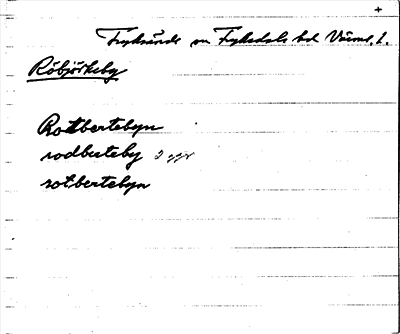 +
Fryksände sn Fryksdals hd Värml. l.
Röbjörkeby
Rottbertebyn
rodberteby 2 ggr
rotbertebyn